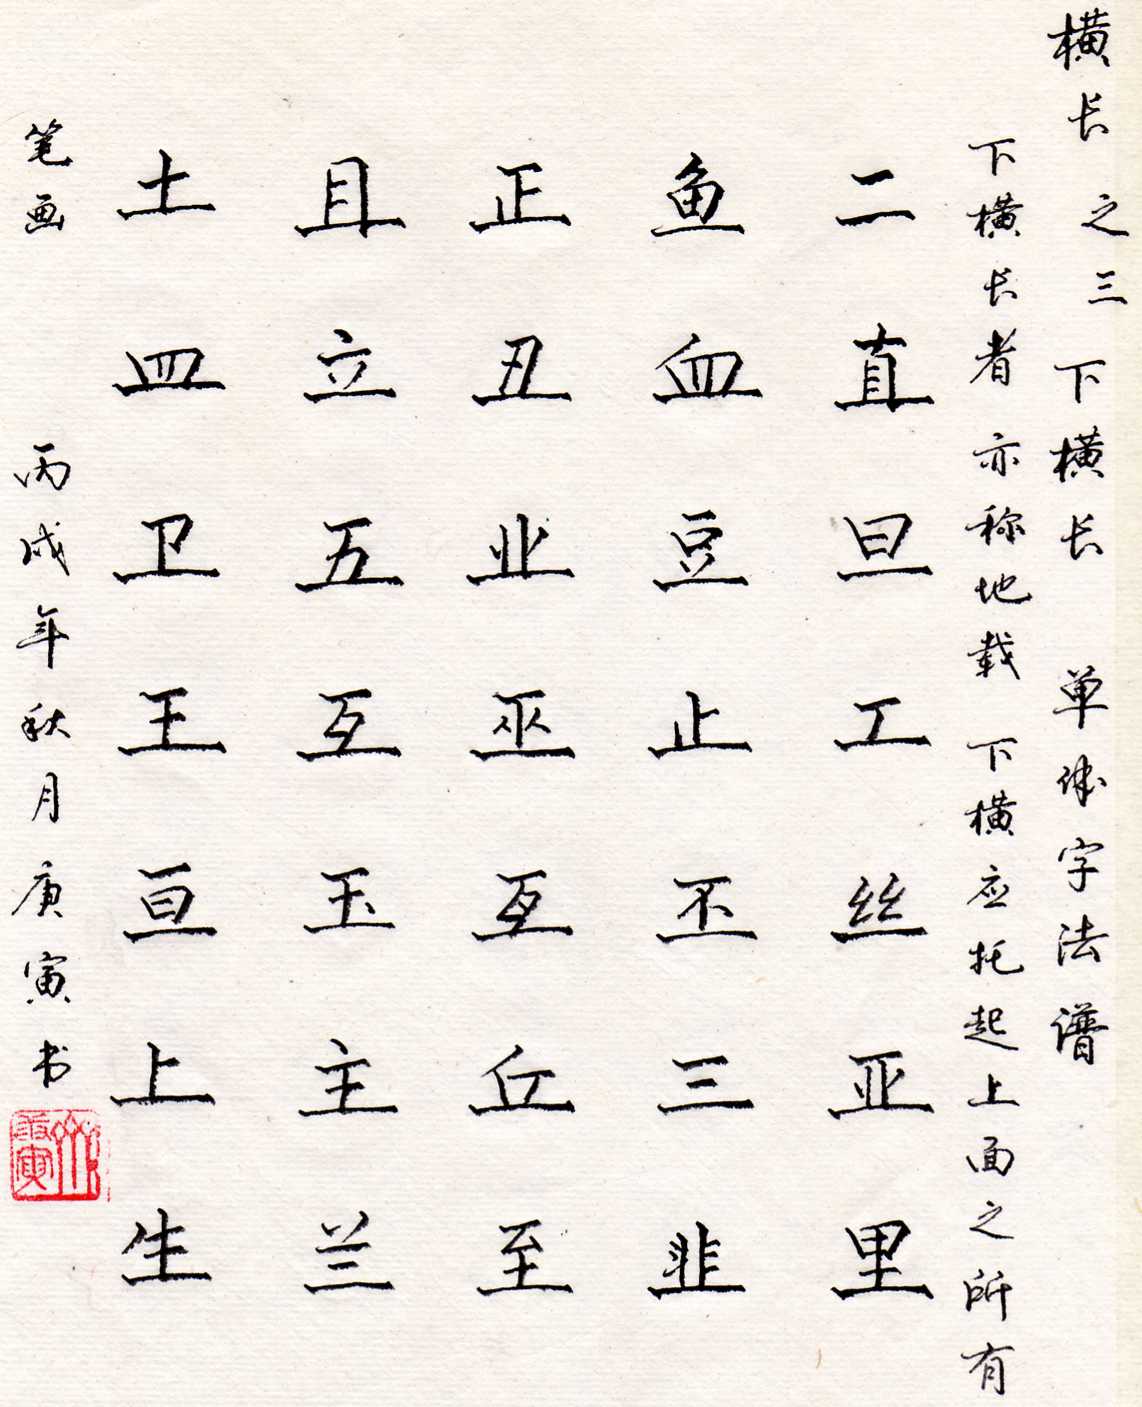 横长之三 下横长 单体字法谱
下横长者亦称地载 下横应托起上面之所有
二直旦工丝亚里
鱼血豆止丕三韭
正丑业巫亙丘至
且立五互玉主兰
土皿卫王亘上生
笔画 丙戌年秋月庚寅书